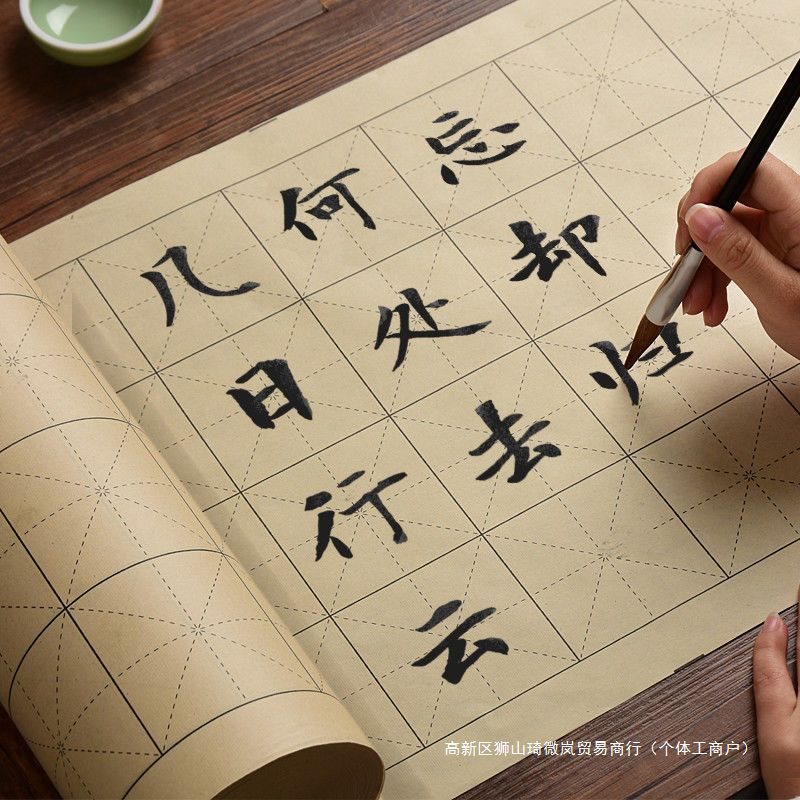 几日行云
何处去
忘却归
高新区狮山琦微岚贸易商行（个体工商户）